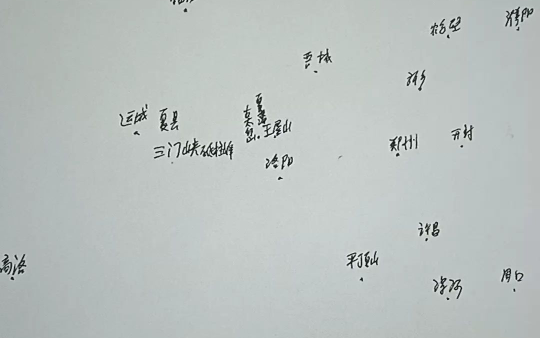 濮阳
鹤壁
晋城
新乡
运城
夏县
王屋山
三门峡砥柱
洛阳
郑州
开封
许昌
商洛
平顶山
漯河
周口